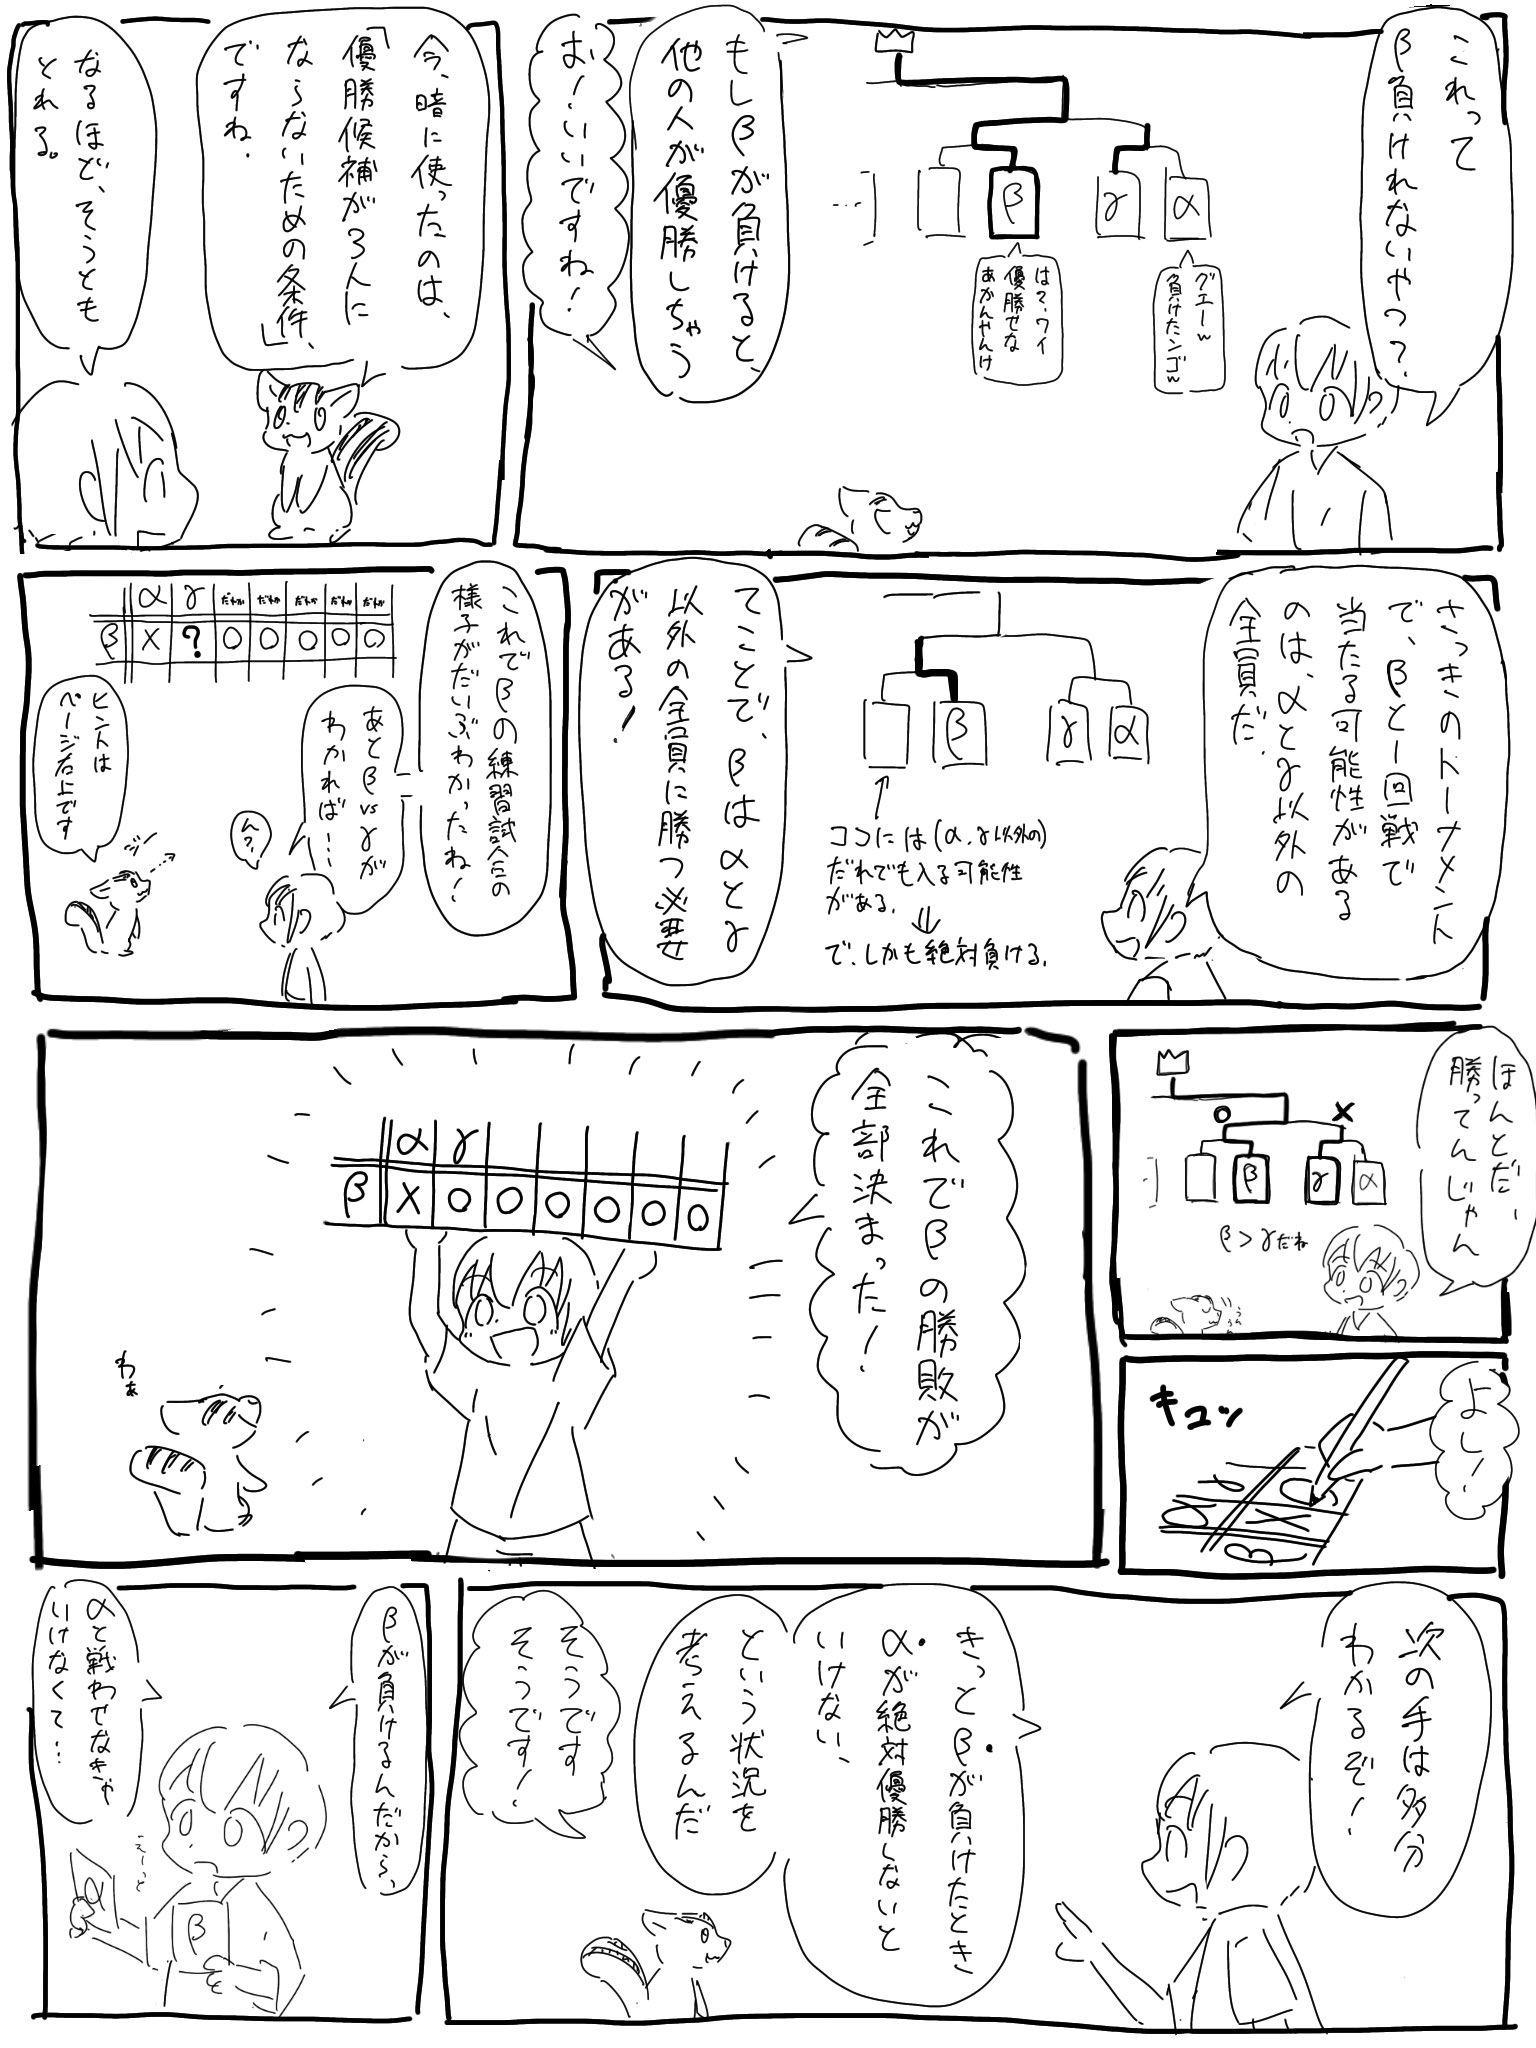 これって
β負けれないやつ?
γ
α
β
グエーw
負けたンゴw
は?ワイ
優勝せな
あかんやんけ
もしβが負けると、
他の人が優勝しちゃう
お!いいですね!
今、暗に使ったのは、
「優勝候補が3人に
ならないための条件」
ですね.
なるほど、そうとも
とれる。
さっきのトーナメント
で、βと一回戦で
当たる可能性がある
のは、αとγ以外の
全員だ.
β
γ
α
ココには(α,γ以外の)
だれでも入る可能性
がある.
⇓
で、しかも絶対負ける.
てことで、βはαとγ
以外の全員に勝つ必要
がある!
これでβの練習試合の
様子がだいぶわかったね!
あとβvsγが
わかれば…
ん?
α γ だれか だれか だれか だれか だれか
β × ? ○ ○ ○ ○ ○
ヒントは
ページ右上です
ほんとだ、
勝ってんじゃん
○ ×
β γ α
β>γだね
よし!
キュッ
これでβの勝敗が
全部決まった!
α γ
β × ○ ○ ○ ○ ○ ○
わぁ
次の手は多分
わかるぞ!
きっとβが負けたとき
αが絶対優勝しないと
いけない、
という状況を
考えるんだ
そうです
そうです!
βが負けるんだから、
αと戦わせなきゃ
いけなくて…
えーっと
α
β